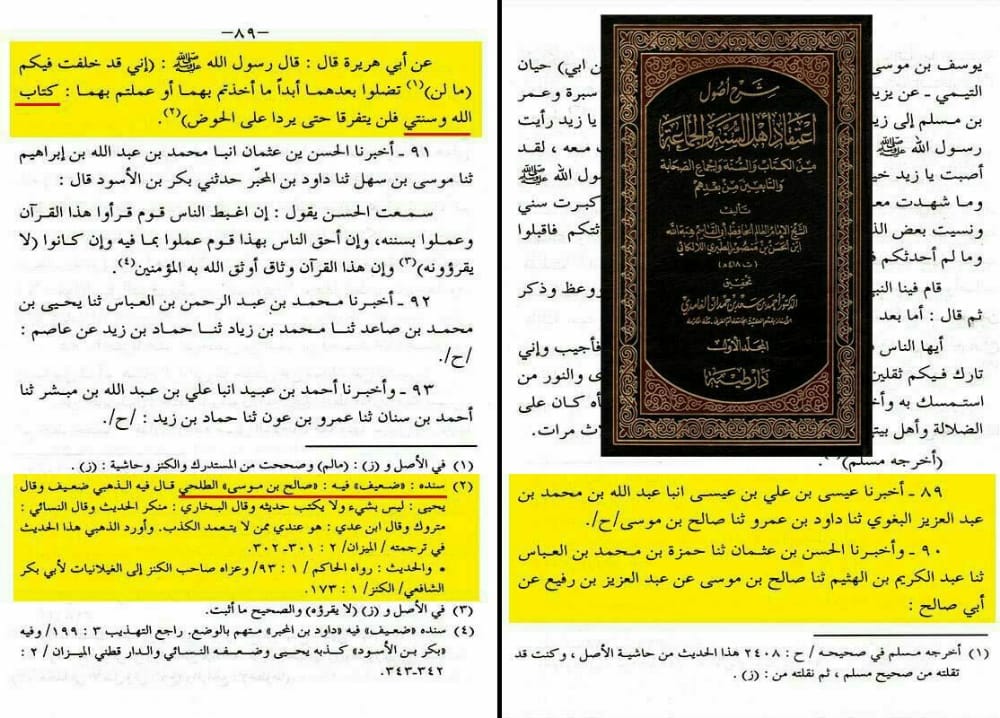 يوسف بن موسى
ن ابي) حيان
التيمي - عن يزيد
سبرة وعمر
بن مسلم إلى زي
يا زيد رأيت
رسول الله ﷺ
معه ، لقد
أصبت يا زيد خي
ول الله ﷺ
وما شهدت معه
كبرت سني
ونسيت بعض الذ
ثتكم فاقبلوا
وما لم أحدثكم ف
قام فينا النبي
ووعظ وذكر
ثم قال : أما بعد
أيها الناس ف
فأجيب وإني
تارك فيكم ثقلين
ى والنور من
استمسك به وأخ
أه كان على
الضلالة وأهل بيتي
لاث مرات.
(أخرجه مسلم)
شرح أصول
اعتقاد أهل السنة والجماعة
من الكتاب والسنة وإجماع الصحابة
والتابعين من بعدهم
تأليف
الشيخ الإمام العالم الحافظ أبو القاسم هبة الله
ابن الحسن بن منصور الطبري اللالكائي
(ت ٤١٨ هـ)
تحقيق
الدكتور أحمد بن سعد بن حمدان الغامدي
المجلد الأول
دار طيبة
٨٩ - أخبرنا عيسى بن علي بن عيسى انبا عبد الله بن محمد بن
عبد العزيز البغوي ثنا داود بن عمرو ثنا صالح بن موسى/ح/.
٩٠ - وأخبرنا الحسن بن عثمان ثنا حمزة بن محمد بن العباس
ثنا عبد الكريم بن الهثيم ثنا صالح بن موسى عن عبد العزيز بن رفيع عن
أبي صالح :
(١) أخرجه مسلم في صحيحه / ح : ٢٤٠٨ هذا الحديث من حاشية الأصل ، وكنت قد
نقلته من صحيح مسلم ، ثم نقلته من : (ز) .
-٨٩-
عن أبي هريرة قال : قال رسول الله ﷺ : (إني قد خلفت فيكم
(ما لن)(١) تضلوا بعدهما أبداً ما أخذتم بهما أو عملتم بهما : كتاب
الله وسنتي فلن يتفرقا حتى يردا على الحوض)(٢).
٩١ - أخبرنا الحسن بن عثمان انبا محمد بن عبد الله بن إبراهيم
ثنا موسى بن سهل ثنا داود بن المحبّر حدثني بكر بن الأسود قال :
سمعت الحسن يقول : إن اغبط الناس قوم قرأوا هذا القرآن
وعملوا بسننه، وإن أحق الناس بهذا قوم عملوا بما فيه وإن كانوا (لا
يقرؤونه)(٣) وإن هذا القرآن وثاق أوثق الله به المؤمنين(٤).
٩٢ - أخبرنا محمد بن عبد الرحمن بن العباس ثنا يحيى بن
محمد بن صاعد ثنا محمد بن زياد ثنا حماد بن زيد عن عاصم :
/ح/.
٩٣ - وأخبرنا أحمد بن عبيد انبا علي بن عبد الله بن مبشر ثنا
أحمد بن سنان ثنا عمرو بن عون ثنا حماد بن زيد : /ح/.
(١) في الأصل و (ز) : (مالم) وصححت من المستدرك والكنز وحاشية : (ز).
(٢) سنده : «ضعيف» فيه : «صالح بن موسى» الطلحي قال فيه الذهبي ضعيف وقال
يحيى : ليس بشيء ولا يكتب حديثه وقال البخاري : منكر الحديث وقال النسائي :
متروك وقال ابن عدي : هو عندي ممن لا يتعمد الكذب. وأورد الذهبي هذا الحديث
في ترجمته / الميزان/ ٢ : ٣٠١-٣٠٢.
• والحديث : رواه الحاكم/ ١ : ٩٣/ وعزاه صاحب الكنز إلى الغيلانيات لأبي بكر
الشافعي/ الكنز/ ١ : ١٧٣.
(٣) في الأصل و (ز) (لا يقرؤه) والصحيح ما أثبت.
(٤) سنده «ضعيف» فيه «داود بن المحبر» متهم بالوضع. راجع التهذيب ٣ : ١٩٩/ وفيه
«بكر بن الأسود» كذبه يحيى وضعفه النسائي والدار قطني الميزان / ٢ :
٣٤٢-٣٤٣.